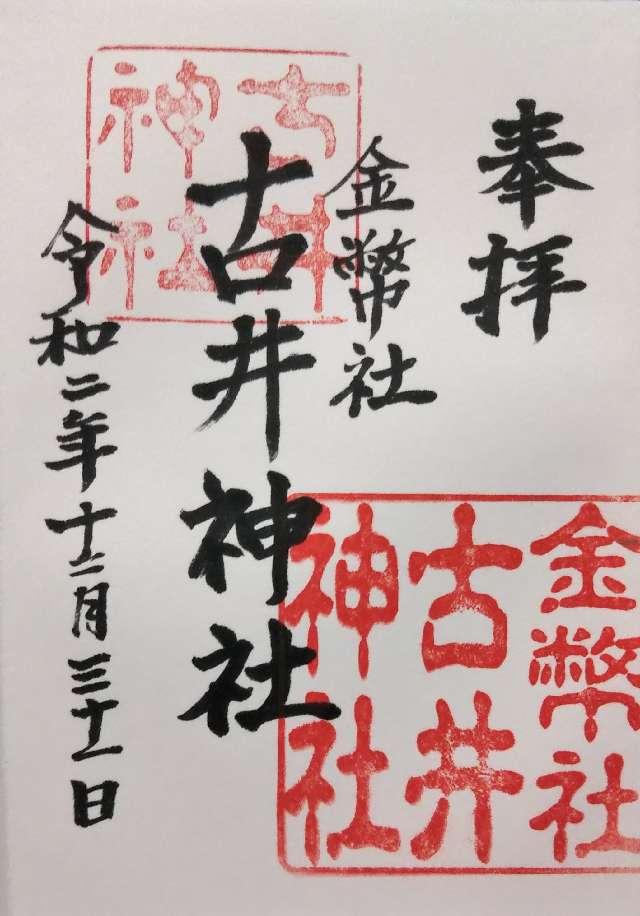 奉拝
金幣社
古井神社
令和二年十二月三十一日
古井
神社
金幣社
古井
神社